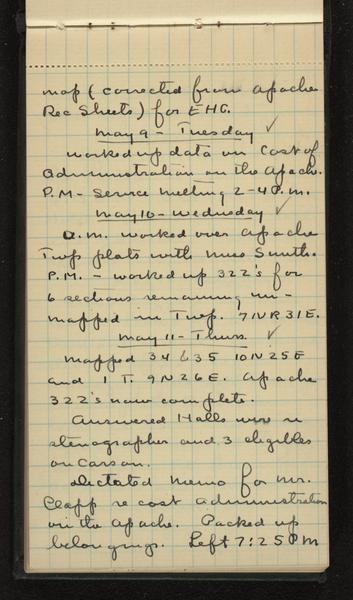 map (corrected from Apache
Rec Sheets) for EHC.
May 9 - Tuesday ✓
Worked up data on Cost of
Administration on the Apache.
P.M - Service Meeting 2-4 P.M.
May 10 - Wednesday ✓
A.M. worked over Apache
Twp plats with Miss Smith.
P.M. - worked up 322's for
6 sections remaining un-
mapped in Twp. 7N R31E.
May 11 - Thurs. ✓
Mapped 34 & 35 10N 25E
and 1 T. 9N 26E. Apache
322's now complete.
Answered Halls wire re
stenographer and 3 eligibles
on Carson.
Dictated memo for Mr.
Clapp re cost administration
on the Apache. Packed up
belongings. Left 7:25 PM